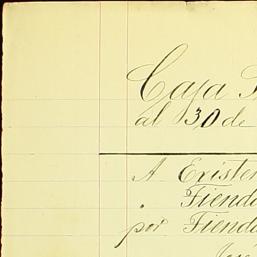 Caja
al 30 de
A Existen
" Tienda
por Tienda